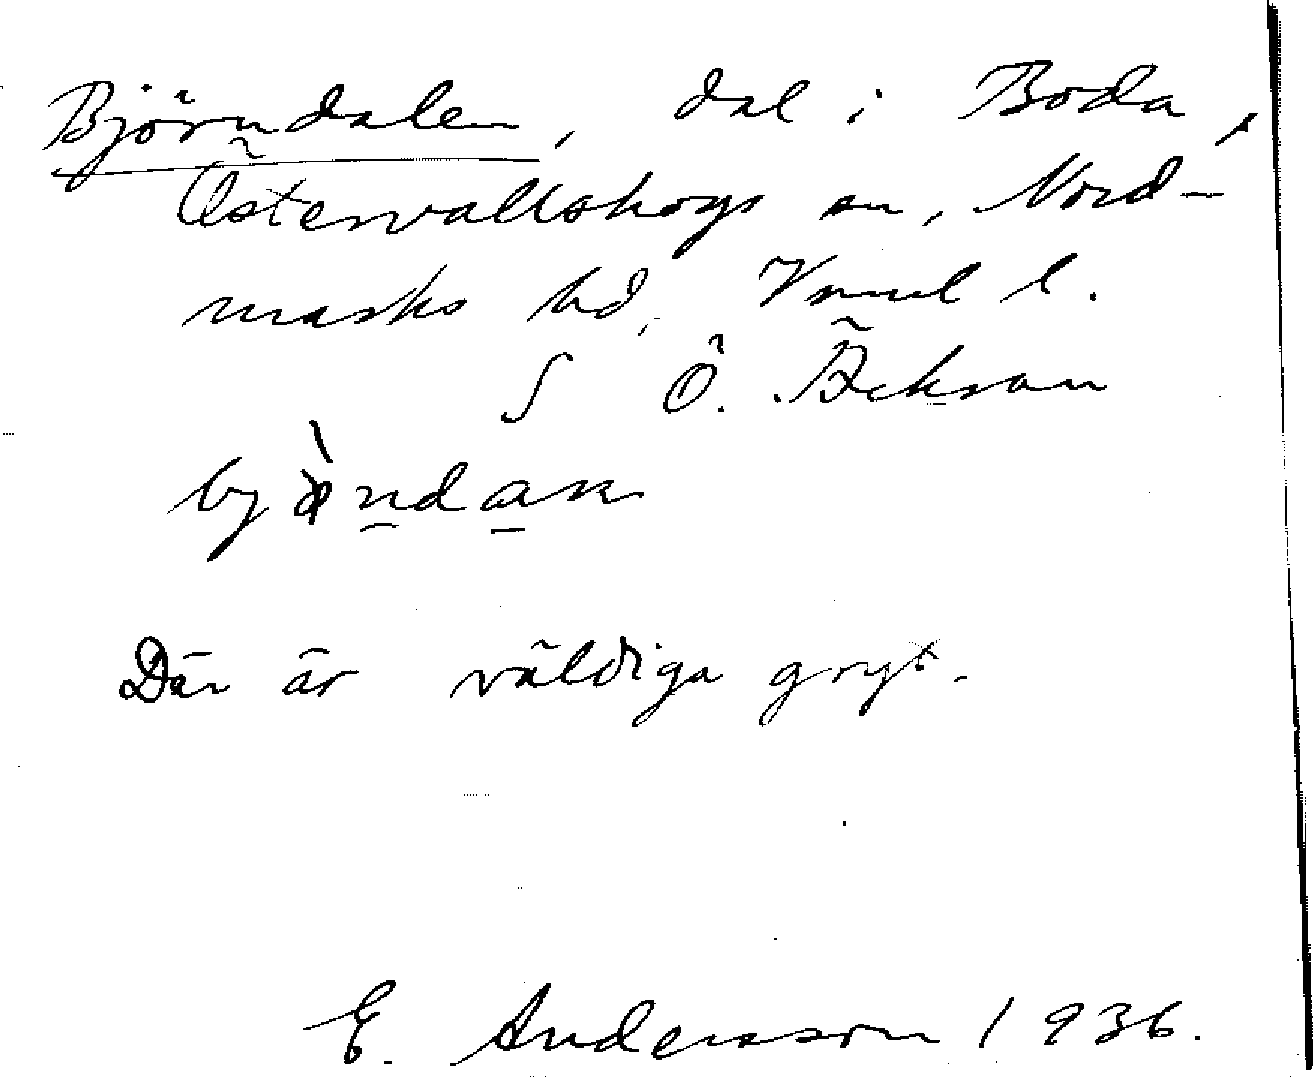 Björndalen, dal i Boda,
Östervallskogs sn, Nord-
marks hd, Vrml l.
S Ö.
Där är väldiga gryt.
E. Andersson 1936.